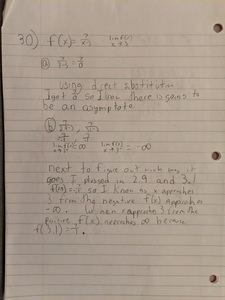 30) f(x)= 7/x-3 lim f(x) x→3
(a) 7/3-3 = 7/0
using direct substitution
I got 0 so I know there is going to
be an asymptote.
(b)
lim f(x)=∞ lim f(x) = -∞
next to figure out which way it
goes I plugged in 2.9 and 3.1
so I know as x approaches
3 from the negative f(x) approaches
-∞. When x approaches 3 from the
positive f(x) approaches ∞ because
f(3.1)=